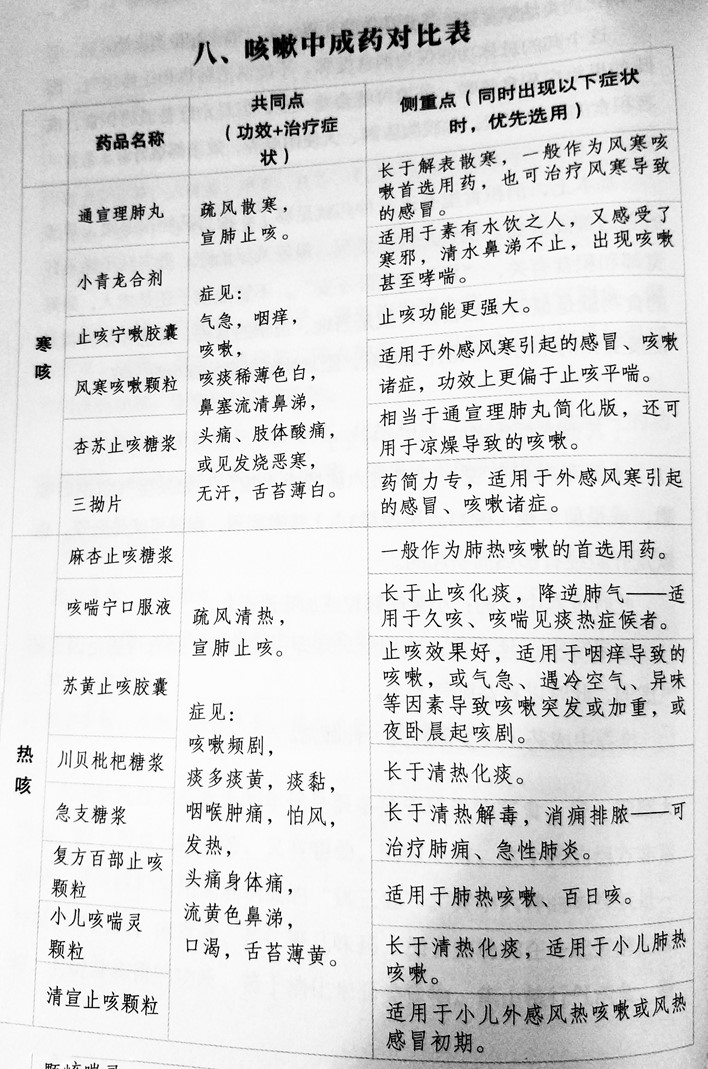 八、咳嗽中成药对比表
药品名称
共同点
（功效+治疗症
状）
侧重点（同时出现以下症状
时，优先选用）
寒
咳
通宣理肺丸
小青龙合剂
止咳宁嗽胶囊
风寒咳嗽颗粒
杏苏止咳糖浆
三拗片
疏风散寒，
宣肺止咳。
症见：
气急，咽痒，
咳嗽，
咳痰稀薄色白，
鼻塞流清鼻涕，
头痛、肢体酸痛，
或见发烧恶寒，
无汗，舌苔薄白。
长于解表散寒，一般作为风寒咳
嗽首选用药，也可治疗风寒导致
的感冒。
适用于素有水饮之人，又感受了
寒邪，清水鼻涕不止，出现咳嗽
甚至哮喘。
止咳功能更强大。
适用于外感风寒引起的感冒、咳嗽
诸症，功效上更偏于止咳平喘。
相当于通宣理肺丸简化版，还可
用于凉燥导致的咳嗽。
药简力专，适用于外感风寒引起
的感冒、咳嗽诸症。
热
咳
麻杏止咳糖浆
咳喘宁口服液
苏黄止咳胶囊
川贝枇杷糖浆
急支糖浆
复方百部止咳
颗粒
小儿咳喘灵
颗粒
清宣止咳颗粒
疏风清热，
宣肺止咳。
症见：
咳嗽频剧，
痰多痰黄，痰黏，
咽喉肿痛，怕风，
发热，
头痛身体痛，
流黄色鼻涕，
口渴，舌苔薄黄。
一般作为肺热咳嗽的首选用药。
长于止咳化痰，降逆肺气——适
用于久咳、咳喘见痰热症候者。
止咳效果好，适用于咽痒导致的
咳嗽，或气急、遇冷空气、异味
等因素导致咳嗽突发或加重，或
夜卧晨起咳剧。
长于清热化痰。
长于清热解毒，消痈排脓——可
治疗肺痈、急性肺炎。
适用于肺热咳嗽、百日咳。
长于清热化痰，适用于小儿肺热
咳嗽。
适用于小儿外感风热咳嗽或风热
感冒初期。